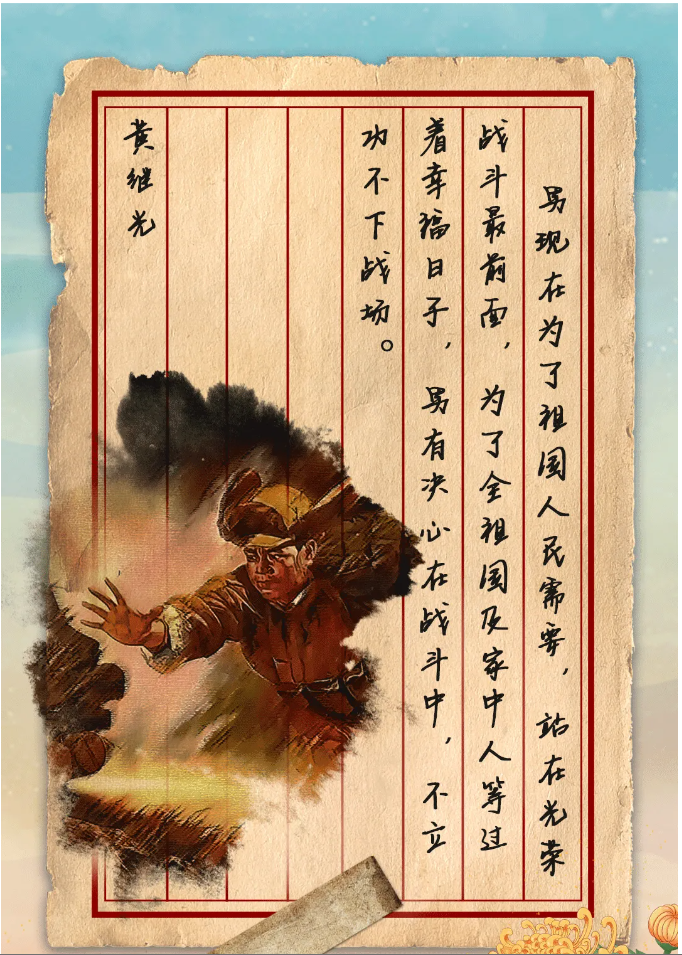 男现在为了祖国人民需要，站在光荣
战斗最前面，为了全祖国及家中人等过
着幸福日子，男有决心在战斗中，不立
功不下战场。
黄继光